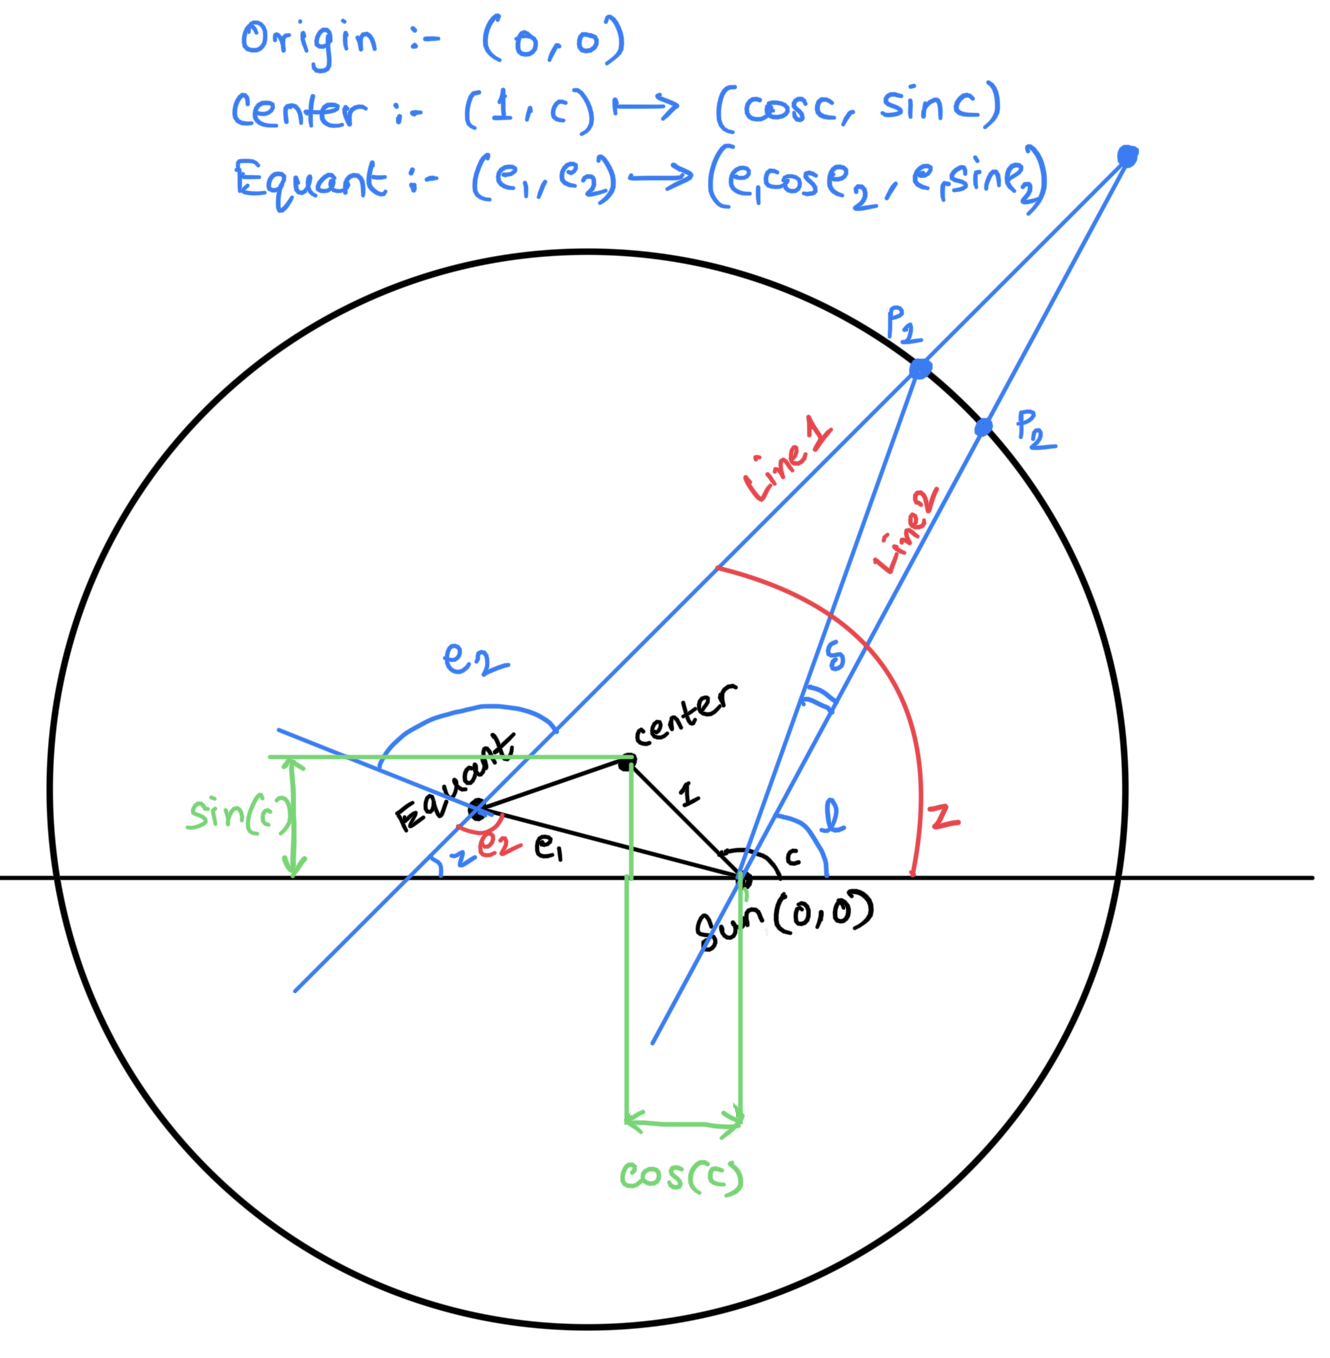 Origin :- (0,0)
Center :- (1,c) ↦ (cosc, sinc)
Equant :- (e₁,e₂) → (e₁cose₂, e₁sine₂)
P₂
P₂
Line1
Line2
δ
e₂
center
Equant
1
sin(c)
l
z
z
e₂
e₁
c
Sun(0,0)
cos(c)